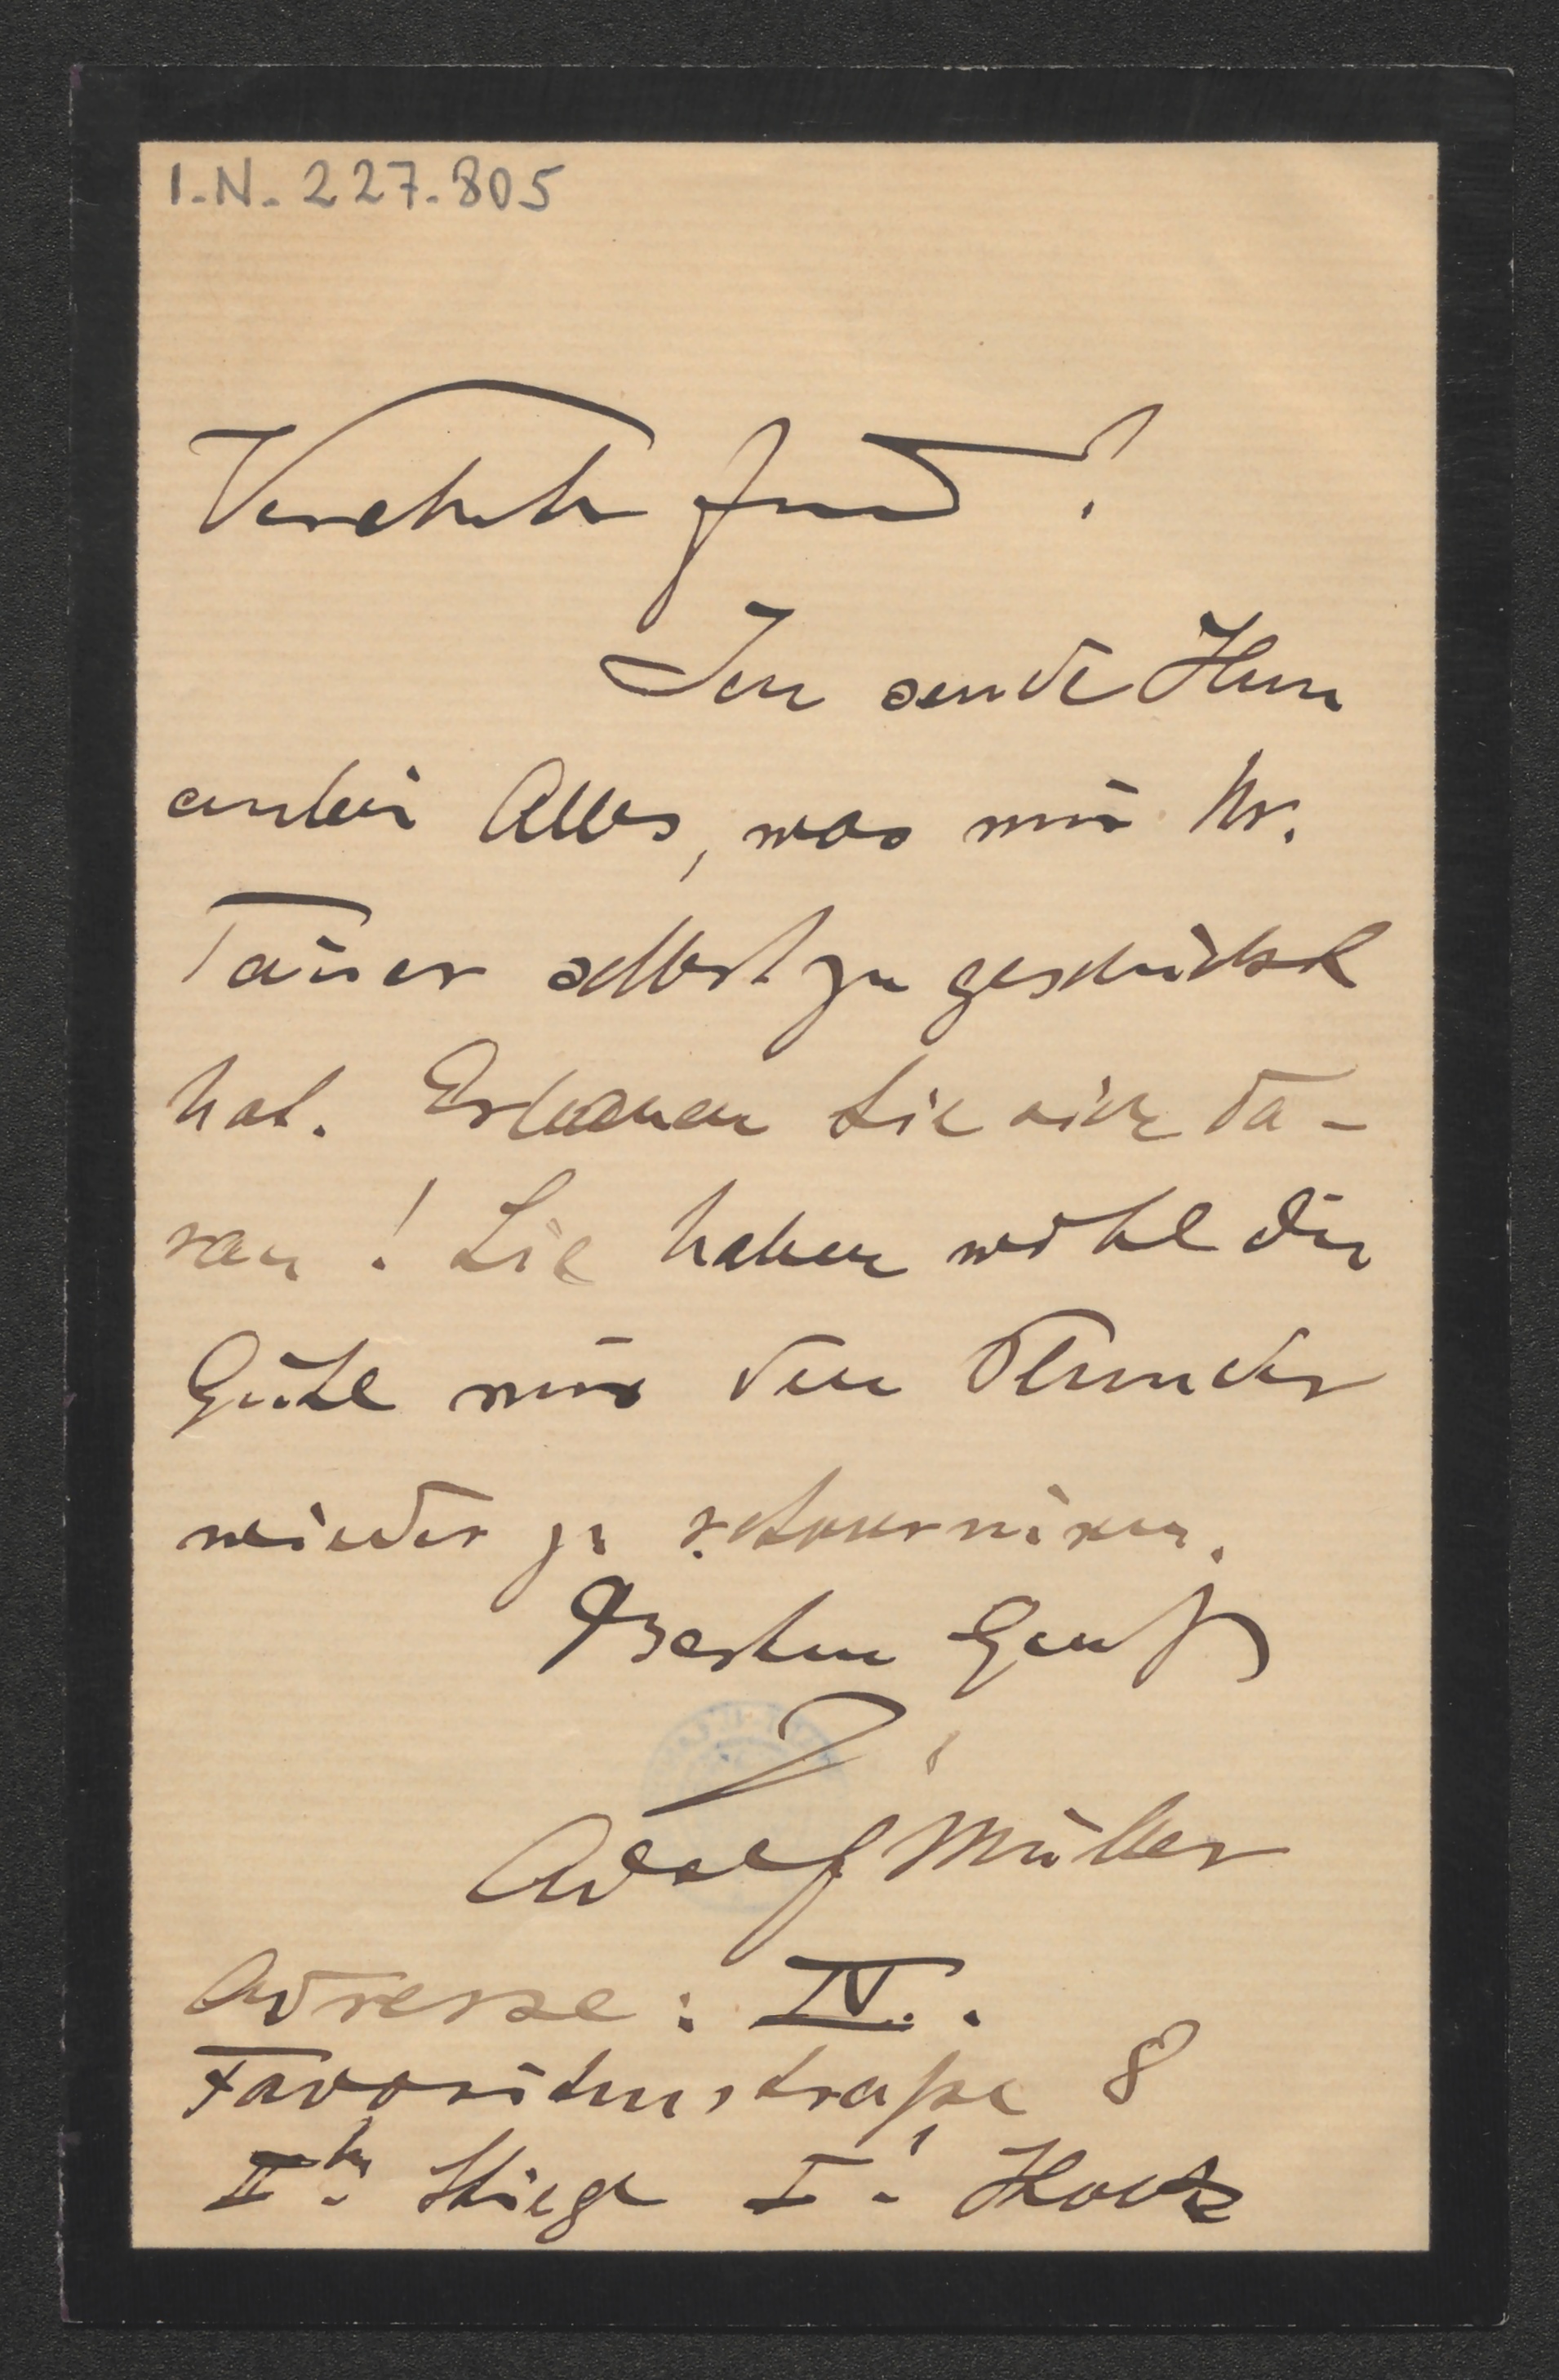 I.N. 227.805
Verehrter Freund!
Ich sende Ihnen
anbei Alles, was mir Hr.
Tauser selbst zu geschickt
hat. Erbauen Sie sich da-
ran! Sie haben wohl die
Güte mir den Plunder
wieder zu retourniren.
Besten Gruß
Ihr
Adolf Müller
Adresse: IV..
Favoritenstraße 8
IIte. Stiege I. Stock